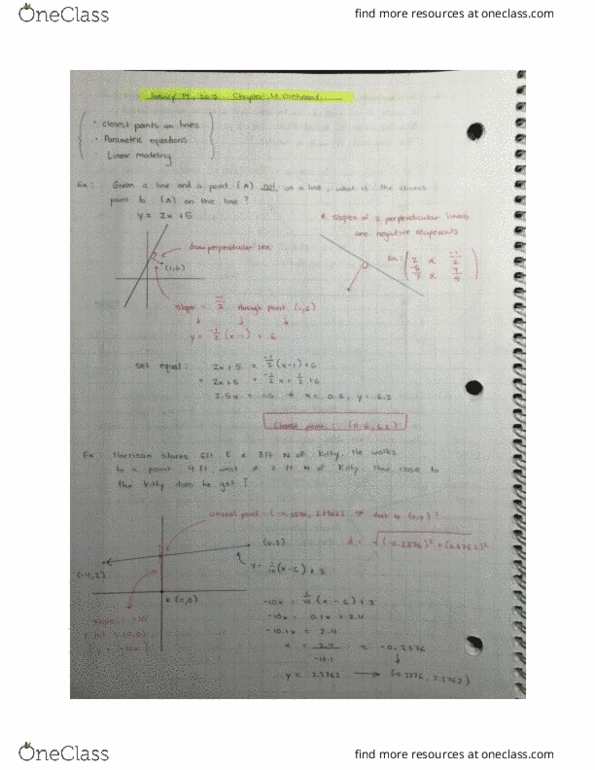 OneClass
find more resources at oneclass.com
January 14, 2015 Chapter
• closest points on lines
• Parametric equations
Linear modeling
Ex: Given a line and a point (A) not on a line, what is the closest
point to (A) on the line?
y = 2x + 5
* slopes of 2 perpendicular lines
are negative reciprocals
draw perpendicular line
(1,6)
Ex: 2 & -1/2
slope = -1/2 through point (1,6)
y = -1/2 (x-1) + 6
set equal: 2x + 5 = -1/2 (x-1) + 6
= 2x + 5 = -1/2 x + 1/2 + 6
2.5x = 1.5 x = 0.6, y = 6.2
closest point: (0.6, 6.2)
Ex: Harrison starts 6 ft E & 3 ft N of Kitty. He walks
to a point 4 ft west & 2 ft N of Kitty. How close to
the Kitty does he get?
closest point: (-0.2376, 2.3762) dist to (0,0)?
d = √(-0.2376)² + (2.3762)²
y = 1/10 (x-6) + 3
(-4,2)
K (0,0)
slope = -10
y = -10x
-10x = 1/10 (x-6) + 3
-10x = 0.1x + 2.4
-10.1x = 2.4
x = 2.4/-10.1 ≈ -0.2376
y = 2.3762
OneClass
find more resources at oneclass.com